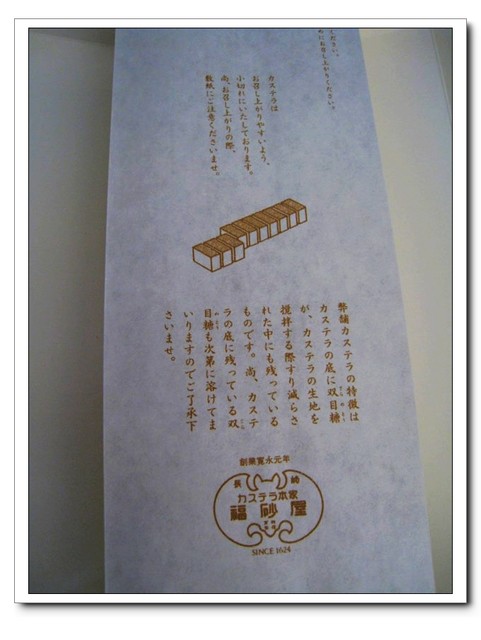 ください。
めにお召し上がりください。
カステラは
お召し上がりやすいよう、
小切れにいたしております。
尚、お召し上がりの際、
敷紙にご注意くださいませ。
弊舗カステラの特徴は
カステラの底に双目糖
が、カステラの生地を
攪拌する際すり減らさ
れた中にも残っている
ものです。尚、カステ
ラの底に残っている双
目糖も次第に溶けてま
いりますのでご了承下
さいませ。
創業寛永元年
長崎
カステラ本家
福砂屋
SINCE 1624